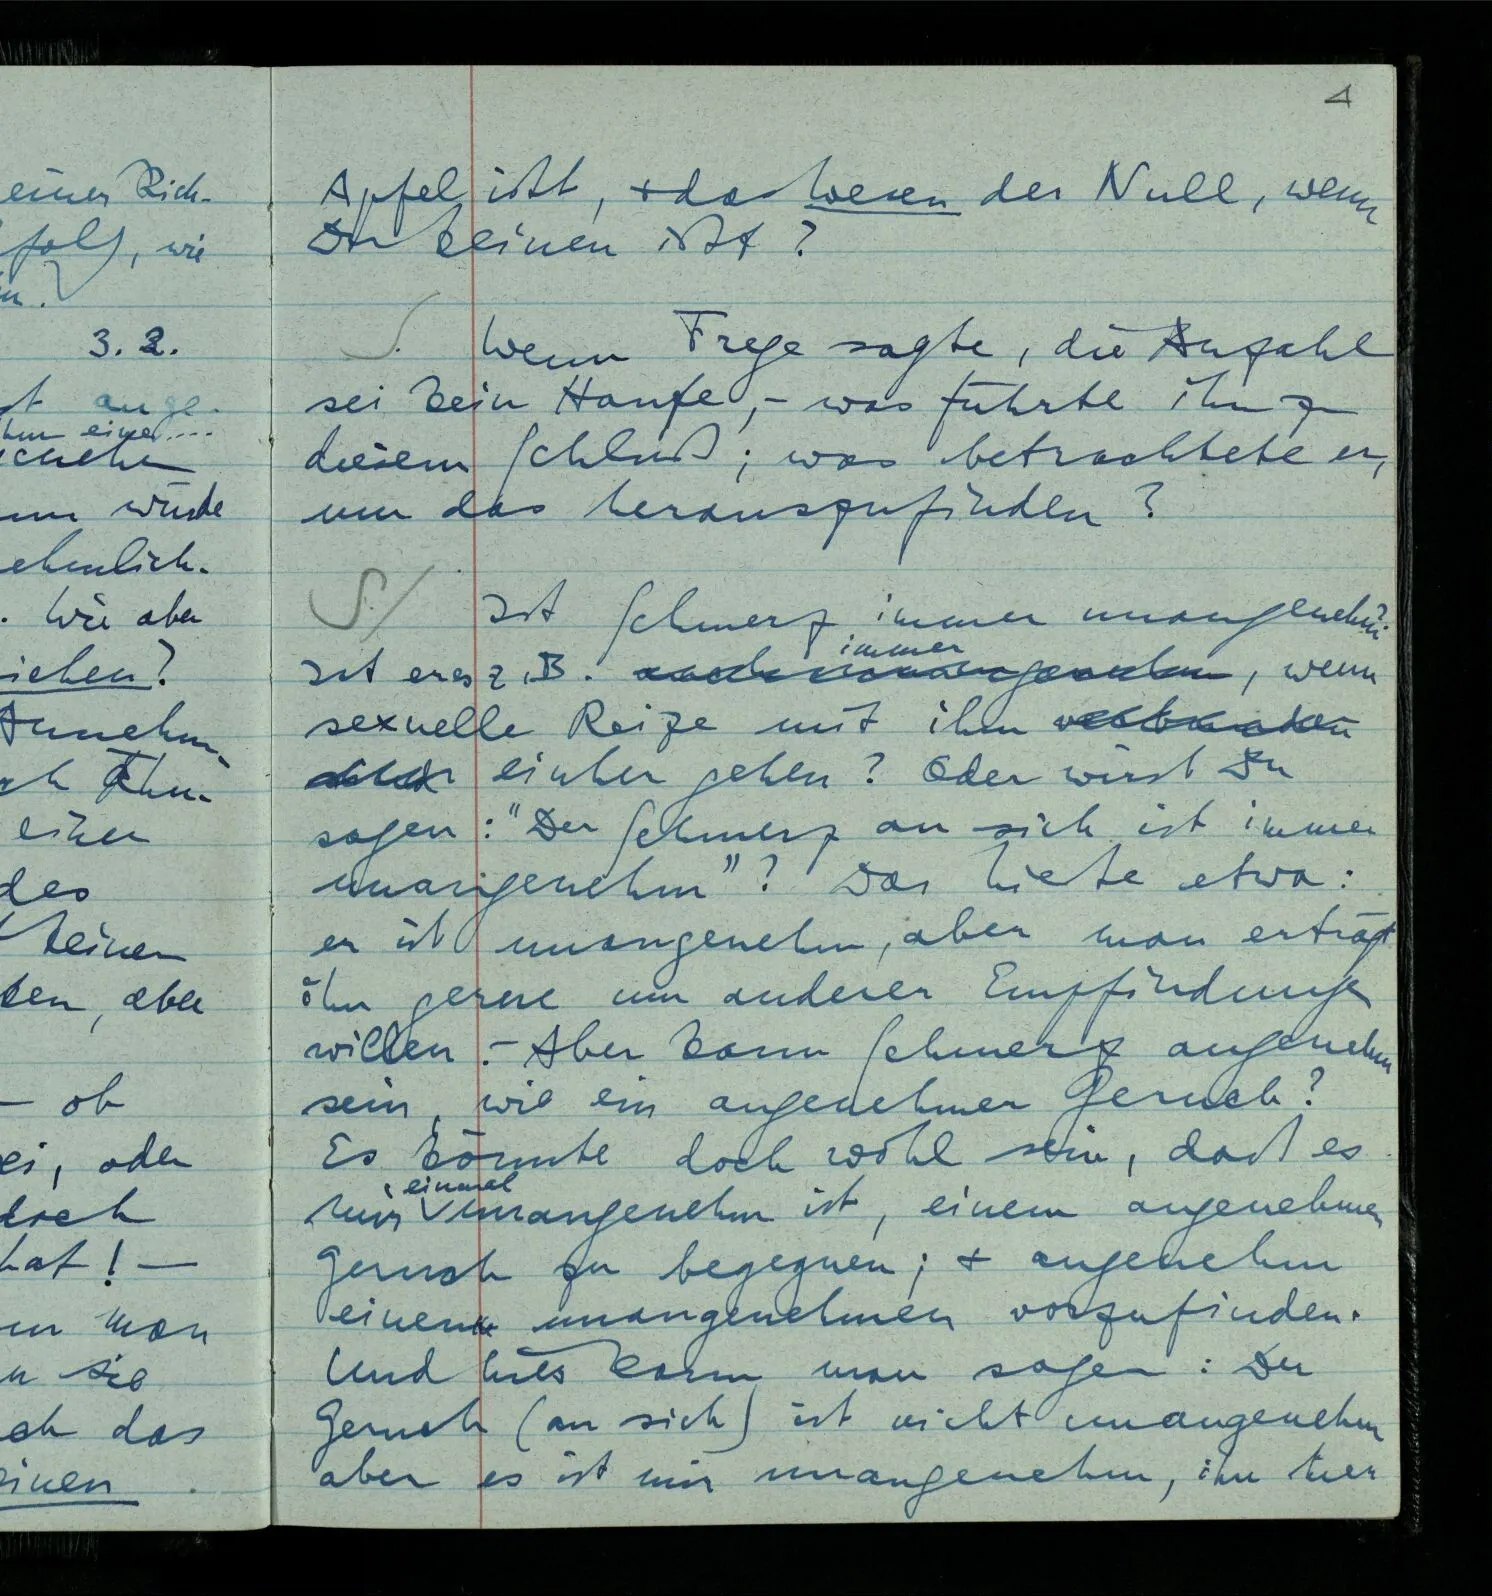 einer Rich-
folg, wie
3.2.
ange-
einer....
würde
ehmlich.
. Wie aber
iehen?
Annehm
einen
des
keinen
ten, aber
— ob
ei, oder
doch
hat! —
man
sie
ch das
einen .
4
Apfel ißt, + das Wesen der Null, wenn
Du keinen ißt?
S. Wenn Frege sagte, die Anzahl
sei kein Haufe, – was führte ihn zu
diesem Schluß; was betrachtete er,
um das herauszufinden?
S./ Ist Schmerz immer unangenehm?
immer
Ist er es z.B. auch unangenehm, wenn
sexuelle Reize mit ihm verbunden
sind einher gehen? Oder wirst Du
sagen: "Der Schmerz an sich ist immer
unangenehm"? Das hieße etwa:
er ist unangenehm, aber man erträgt
ihn gerne um anderer Empfindungen
willen. – Aber kann Schmerz angenehm
sein, wie ein angenehmer Geruch?
Es könnte doch wohl sein, daß es
einmal
mir unangenehm ist, einem angenehmen
Geruch zu begegnen; + angenehm
einen unangenehmen vorzufinden.
Und hier kann man sagen: Der
Geruch (an sich) ist nicht unangenehm
aber es ist mir unangenehm, ihn hier